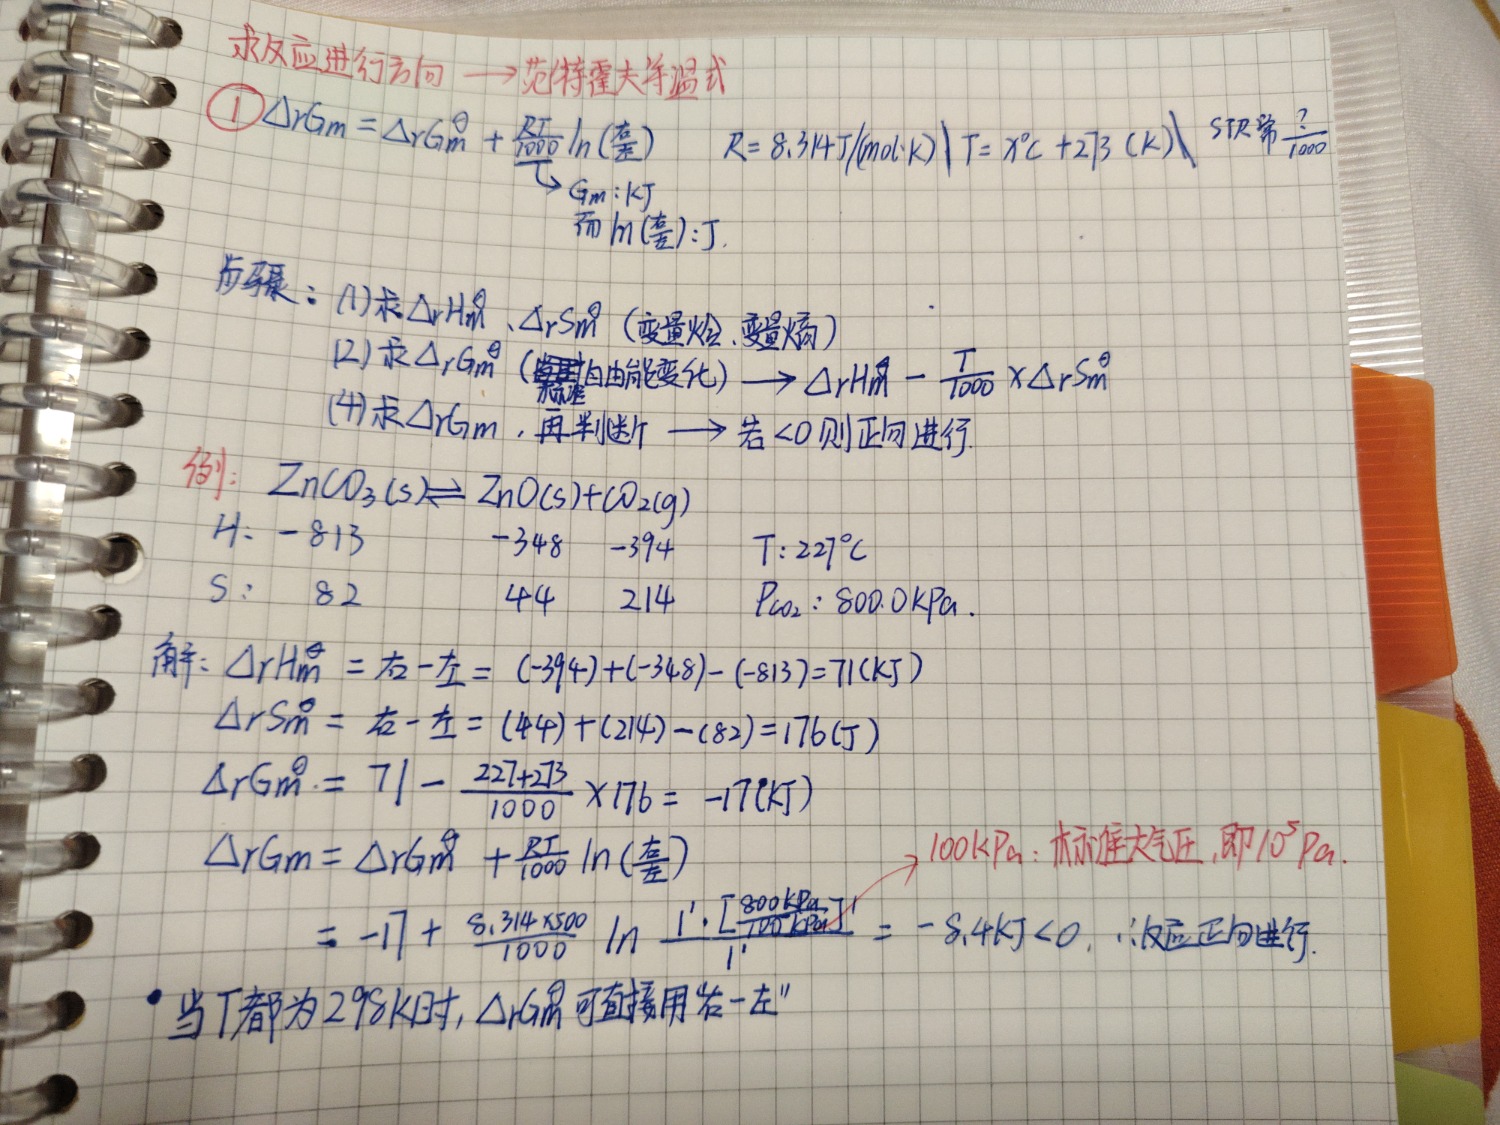 求反应进行方向 → 范特霍夫等温式
① ΔrGm = ΔrGm^θ + RT/1000 ln(右/左) R = 8.314J/(mol·K) \ T = x°C + 273 (K) \ STR常 ?/1000
↳ Gm : KJ
而 ln(右/左) : J.
步骤: (1) 求ΔrHm^θ、ΔrSm^θ (变量焓、变量熵)
(2) 求ΔrGm^θ (标准自由能变化) → ΔrHm^θ - T/1000 × ΔrSm^θ
(4) 求ΔrGm, 再判断 → 若<0则正向进行.
例: ZnCO₃(s) ⇌ ZnO(s) + CO₂(g)
H: -813 -348 -394 T: 227°C
S: 82 44 214 Pco₂: 800.0kPa.
解: ΔrHm^θ = 右-左 = (-394)+(-348)-(-813)=71(KJ)
ΔrSm^θ = 右-左 = (44)+(214)-(82)=176(J)
ΔrGm^θ = 71 - 227+273/1000 ×176 = -17(KJ)
ΔrGm = ΔrGm^θ + RT/1000 ln(右/左)
→ 100kPa: 标准大气压, 即10⁵Pa.
= -17 + 8.314×500/1000 ln 1¹·[800kPa/100kPa]¹/1¹ = -8.4KJ<0, ∴反应正向进行.
• 当T都为298K时, ΔrGm^θ 可直接用"右-左"